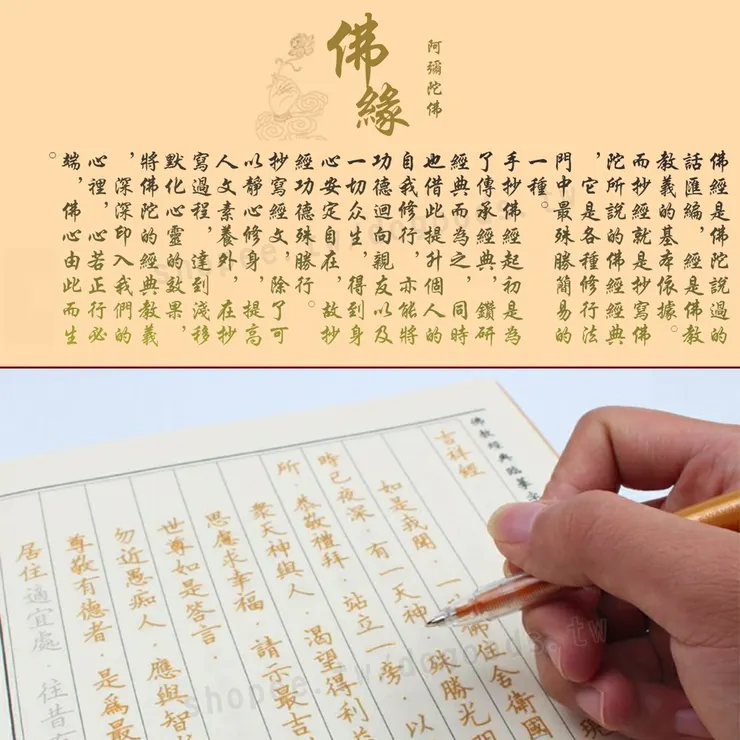 佛緣
阿彌陀佛
佛經是佛陀說過的
話匯編,經是佛教
教義的基本依據。
而抄經就是抄寫佛
陀所說的佛經經典
,它是各種修行法
門中最殊勝簡易的
一種。
手抄佛經起初是為
了傳承經典,鑽研
經典而為之,同時
也借此提升個人的
自我修行,亦能將
功德迴向親友以及
一切众生,得到身
心安定自在,故抄
經功德殊勝行。
抄寫經文,除了可
以靜心修身,提高
人文素養外,在抄
寫過程,達到淺移
默化心靈的效果,
將佛陀的經典教義
,深深印入我們的
心裡,心若正行必
端,佛心由此而生
。
佛教經典臨摹
吉祥經
現
如是我聞.一 佛住舍衛國
時已夜深.有一天神.殊勝光
所.恭敬禮拜.站立一旁.以
衆天神與人.渴望得利
思慮求幸福.請示最吉
世尊如是答言.
勿近愚痴人.應與智
尊敬有德者.是爲最
居住適宜處.往昔
shopee.tw/dogoods.tw